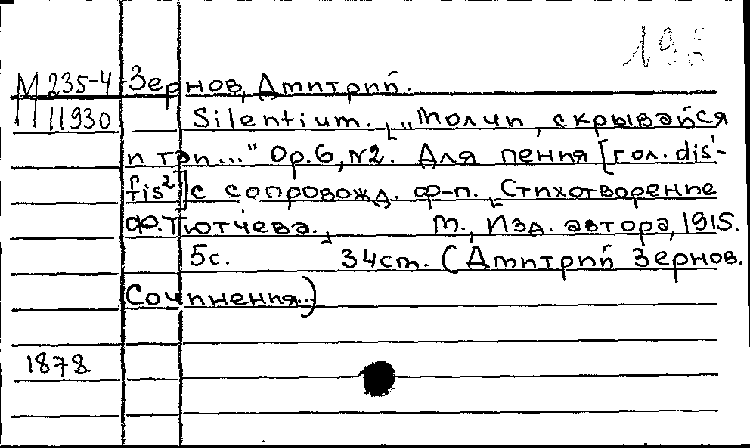 М 235-4 Зернов, Дмитрий.
11930 Silentium. „Молчи, скрывайся
и таи..." Ор.6, №2. Для пения [гол. dis¹-
fis²] с сопровожд. ф-п. Стихотворение
Ф. Тютчева. М., Изд. автора, 1915.
5с. 34cm. (Дмитрий Зернов.
Сочинения.)
1878